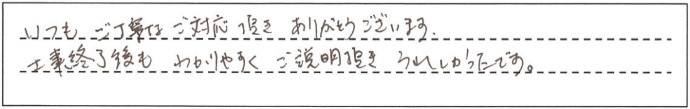 いつも ご丁寧な ご対応 頂き ありがとうございます.
工事終了後も わかりやすく ご説明頂き うれしかったです。